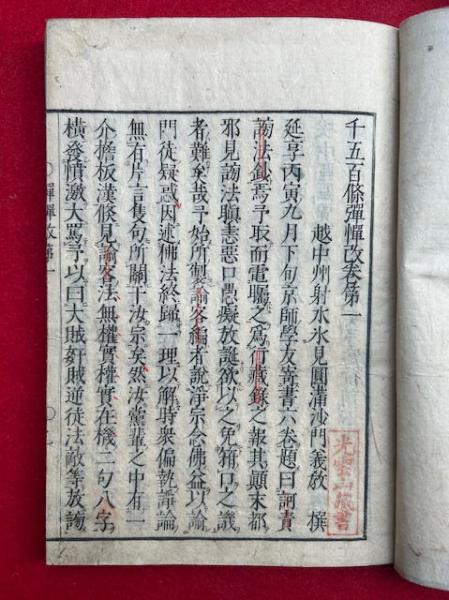 千五百條彈憚改卷第一
越中州射水氷見圓滿沙門義放 撰
延享丙寅九月下旬京師學友寄書六卷題曰訶責
謗法鈔焉予取而電矚之爲行藏錄之報其顛末都
邪見謗法瞋恚惡口愚癡放誕欲以之免箝口之譏
者難矣哉予始所製諭客編者說淨宗念佛益以諭
門徒疑惑因述佛法終歸一理以解時衆偏執諍論
無有片言隻句所關于汝宗矣然汝黨輩之中有一
介檐板漢倐見諭客法無權實權實在機二句八字
橫發憤激大罵予以曰大賊奸賊逆徒法敵等放謗
彈憚改第一
光雲山藏書